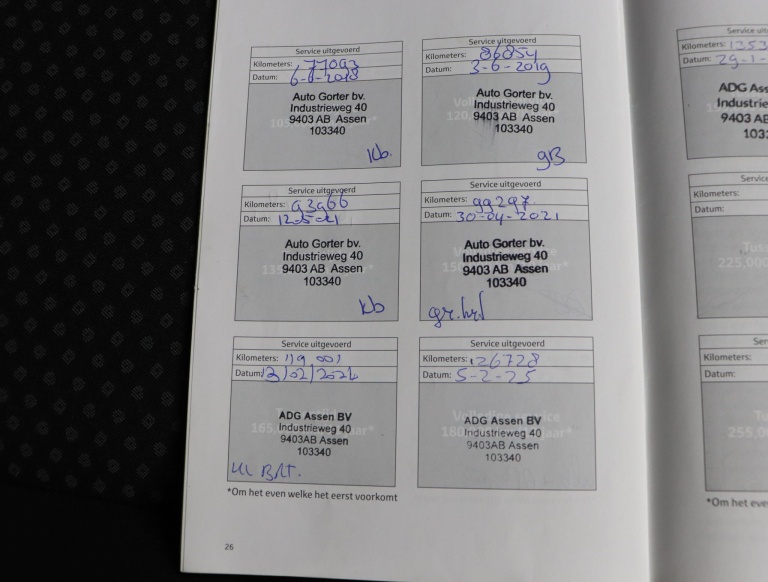 Service uitgevoerd
Kilometers: 77093
Datum: 6-6-2018
Auto Gorter bv.
Industrieweg 40
9403 AB Assen
103340
Kb.
Service uitgevoerd
Kilometers: 86854
Datum: 3-6-2019
Auto Gorter bv.
Industrieweg 40
9403 AB Assen
103340
gB
Service uitgevoerd
Kilometers: 93966
Datum:
Auto Gorter bv.
Industrieweg 40
9403 AB Assen
103340
Kb
Service uitgevoerd
Kilometers: 99297
Datum: 30-04-2021
Auto Gorter bv.
Industrieweg 40
9403 AB Assen
103340
Service uitgevoerd
Kilometers: 119 001
Datum: 13/02/2024
ADG Assen BV
Industrieweg 40
9403AB Assen
103340
Service uitgevoerd
Kilometers: 126728
Datum: 5-2-25
ADG Assen BV
Industrieweg 40
9403AB Assen
103340
*Om het even welke het eerst voorkomt
26
Kilometers: 1353
Datum: 29-1-
ADG Ass
Industrie
9403 A
Kilometers:
Datum:
225,000
Kilometers:
Datum:
255,00
*Om het even